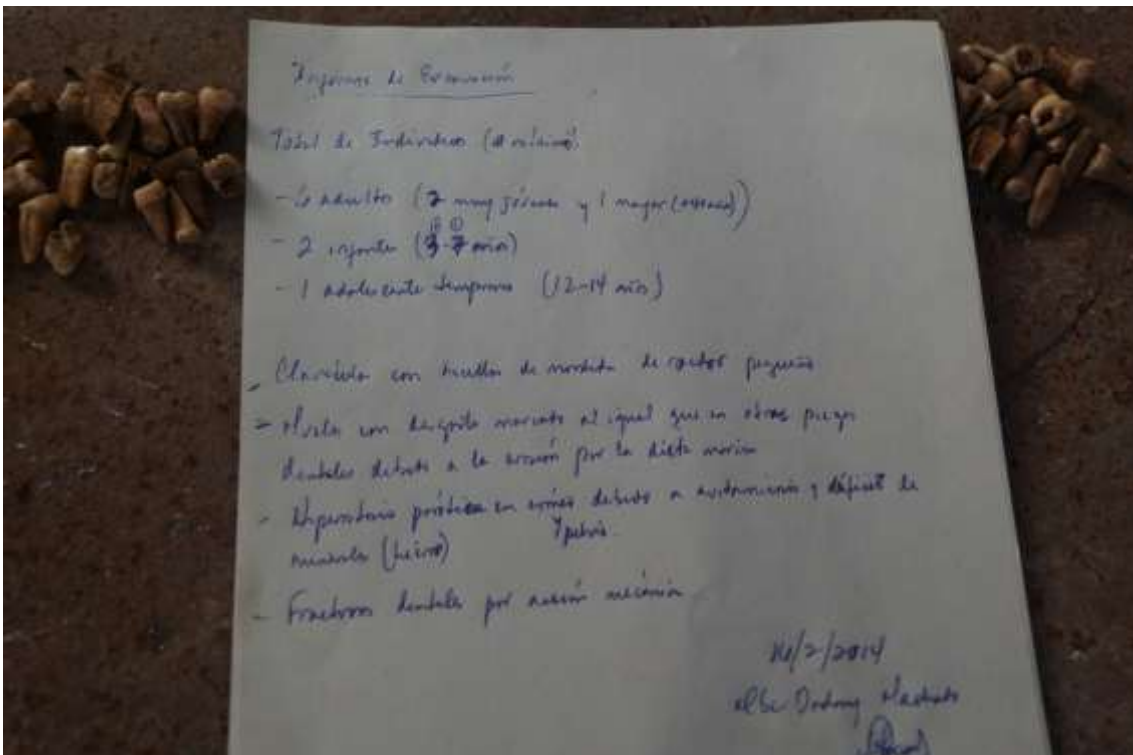 Informe de Excavación
Total de Individuos (# mínimo)
- 6 adultos (2 muy jóvenes y 1 mayor
- 2 infantes (3-7 años)
- 1 adolescente temprano (12-14 años)
- Clavícula con huellas de mordida de roedor pequeño
- Muelas con desgaste marcado al igual que en otras piezas
dentales debido a la erosión por la dieta marina
- Hiperostosis porótica en cráneo debido a avitaminosis y déficit de
y pelvis.
minerales (hierro)
- Fracturas dentales por acción mecánica
/2/2014
MSc. Machado